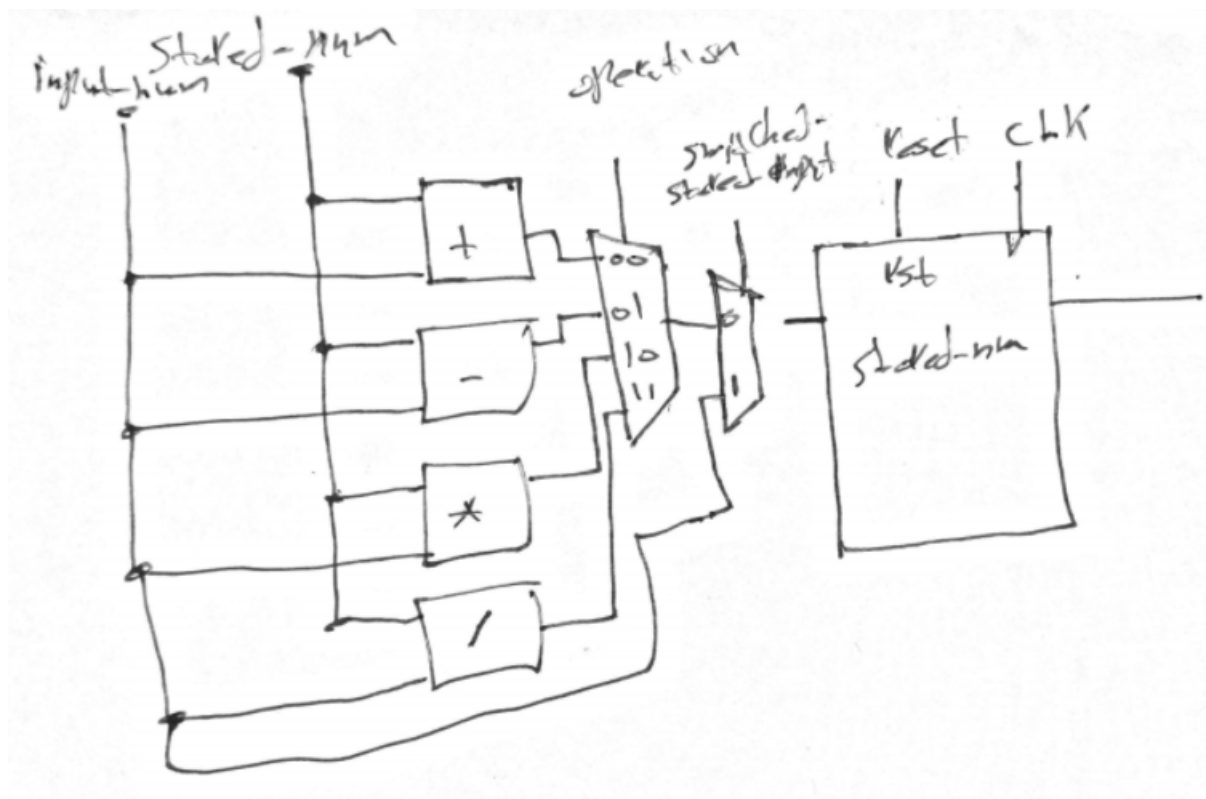 input-num
Stored-num
operation
stored-input
reset
CLK
+
-
*
/
00
01
10
11
0
1
rst
stored-num